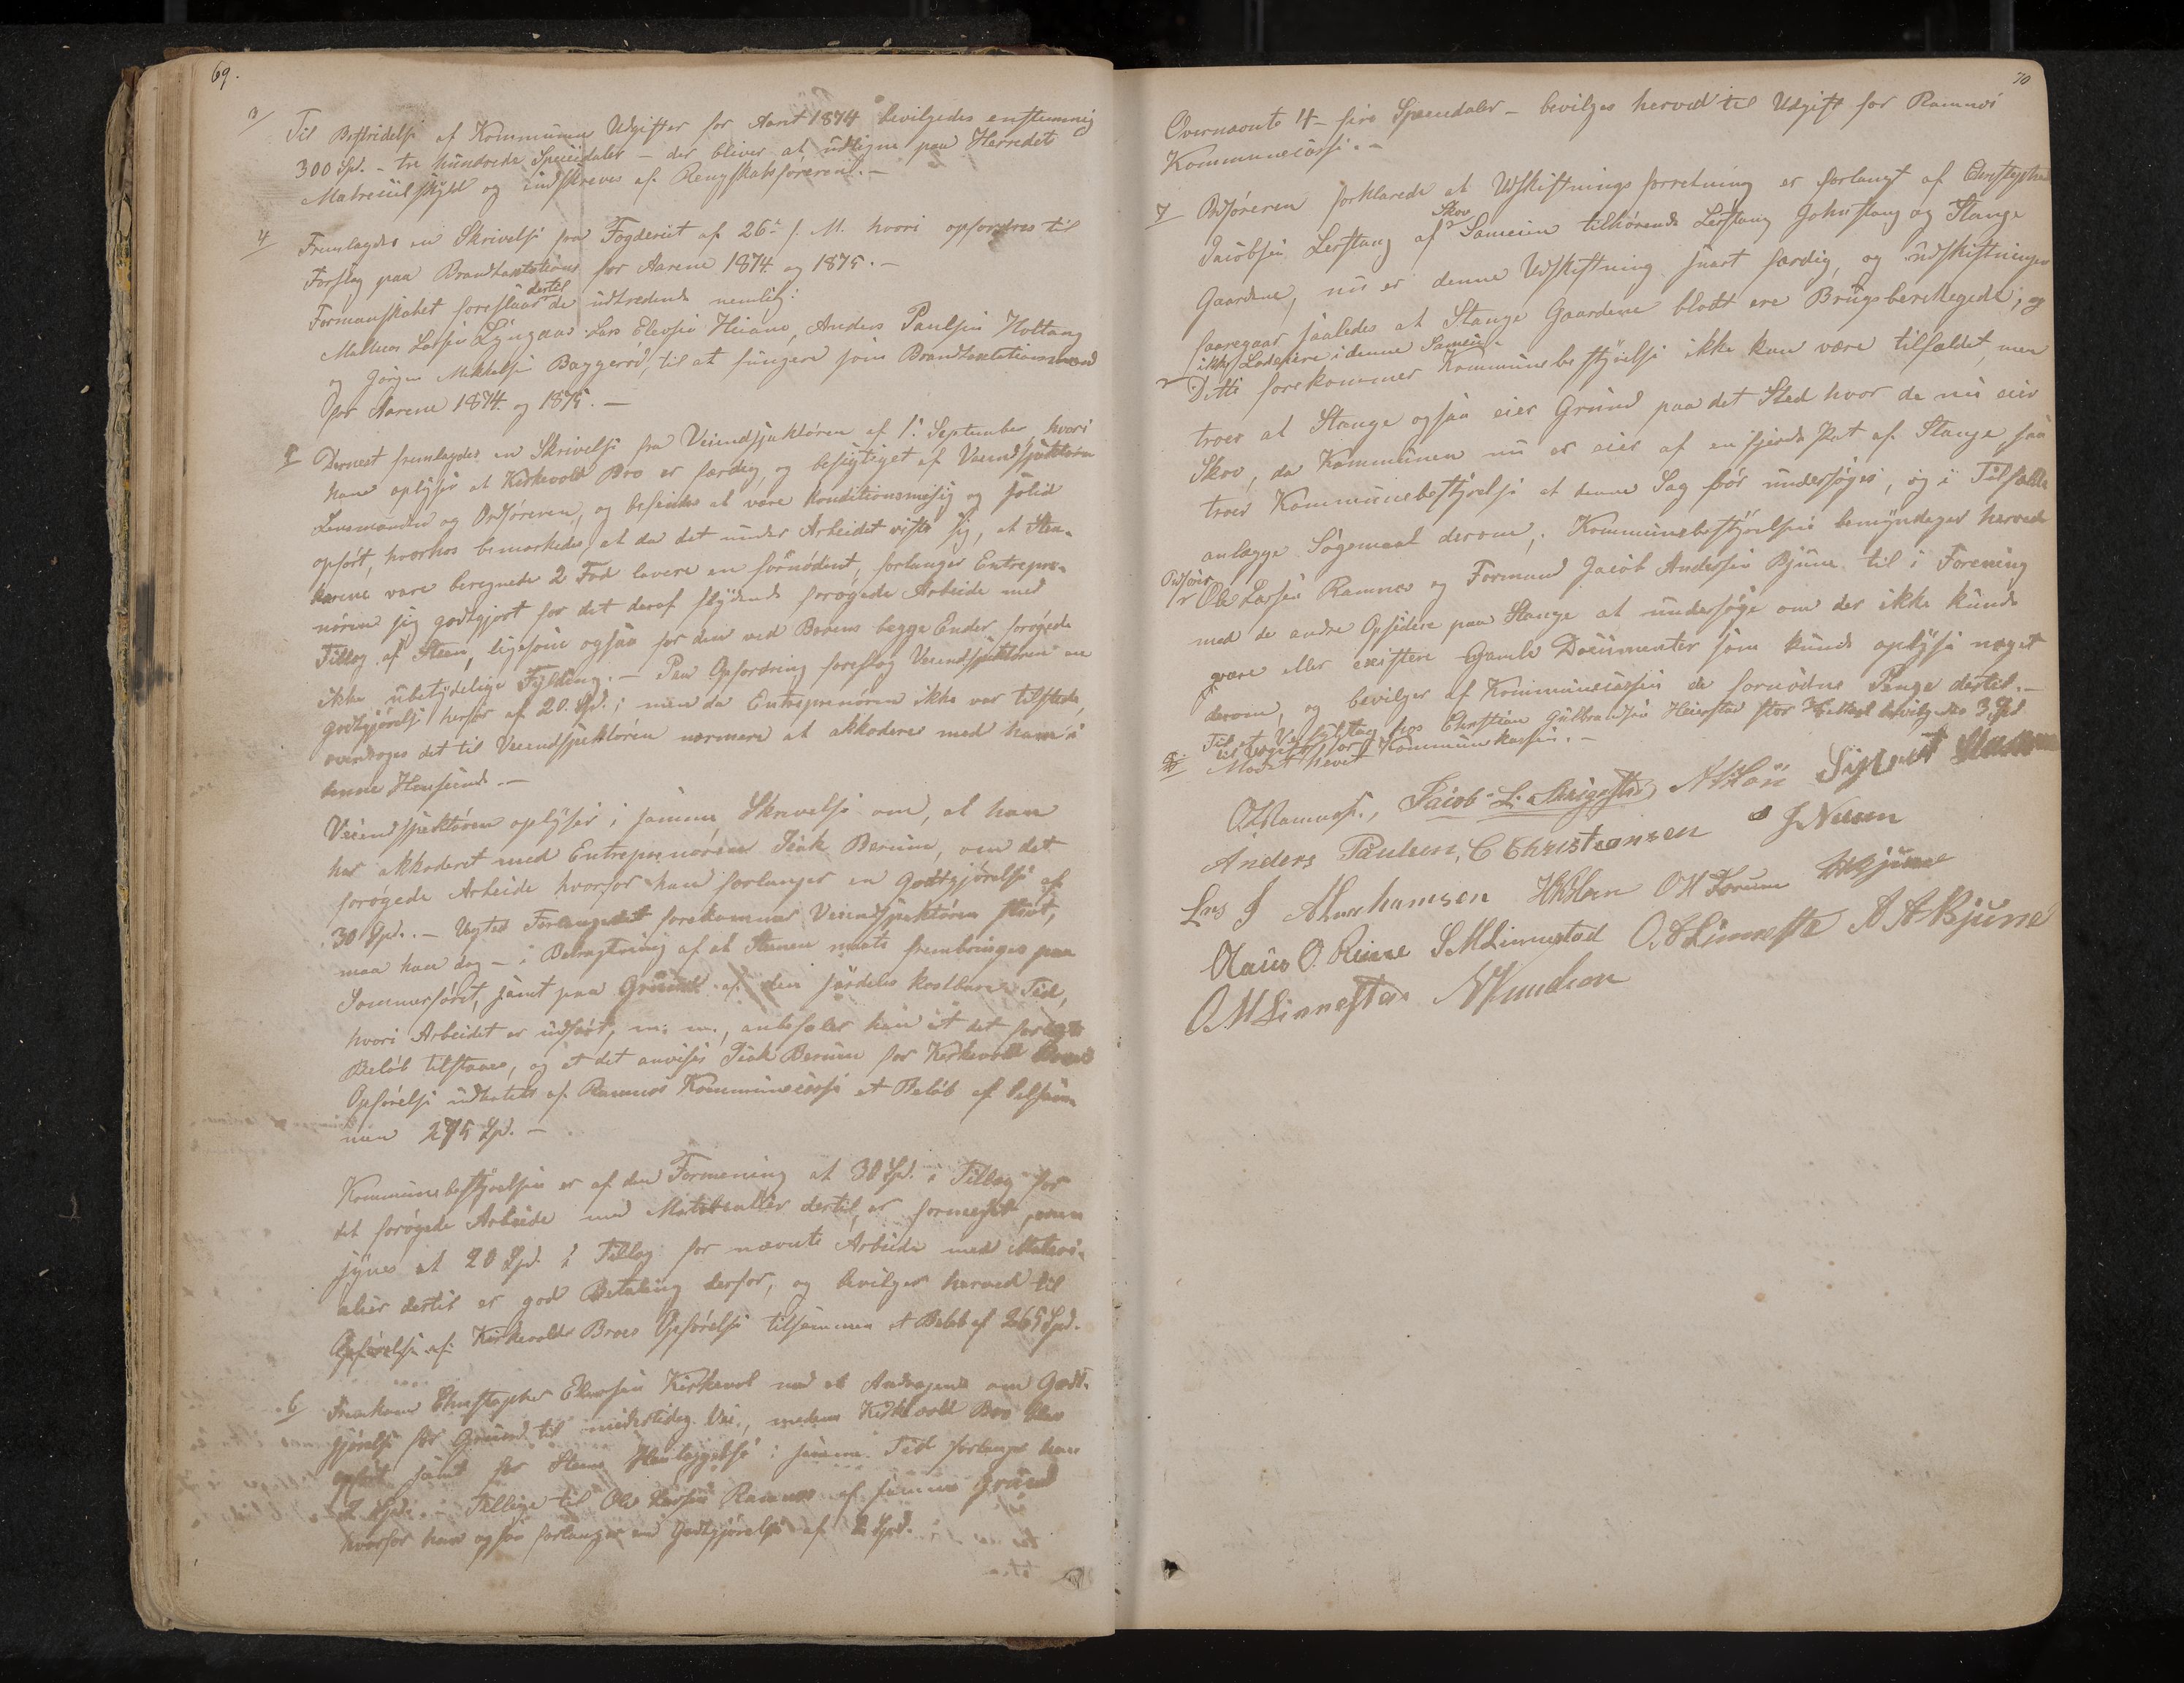 69.
3/ Til Bestridelse af Kommunens Udgifter for Aaret 1874 bevilgedes enstemmig
300 Spd. - tre hundrede Speciedaler - der bliver at udligne paa Herredets
Matreculskyld og indskreves af Rengskabsføreren. -
4/ Fremlagdes en Skrivelse fra Fogderiet af 26de f. M. hvori opfordres til
Forslag paa Brandtaxtations for Aarene 1874 og 1875. -
Formanskabet foreslaar dertil de udtredende nemlig:
Mathias Larsen Lyngaas Lars Elevsen Heiane, Anders Paulsen Holtung
og Jørgen Mikkelsen Baggerød, til at fungere som Brandtaxtationsmænd
for Aarene 1874 og 1875. -
5/ Dernest fremlagdes en Skrivelse fra Veiindspektøren af 1. September, hvori
han oplyser at Kirkevold Bro er færdig, og besigtiget af Veiindspektøren
Lensmanden og Ordføreren, og befindes at være konditionsmæsig og solid
opført, hvorhos bemærkedes, at da det under Arbeidet viste sig, at Sten-
karene vare beregnede 2 Fod lavere en fornødent, forlanger Entrepre-
nøren sig godtgjort for det deraf flydende forøgede Arbeide med
Tillæg af Steen, ligesom ogsaa for den ved Broens begge Ender forøgede
ikke ubetydelige Fylding. - Paa Opfordring foreslog Veiindspektøren en
godtgjørelse herfor af 20 Spd.; men da Entreprenøren ikke var tilstede,
overdroges det til Veiindspektøren nærmere at akkordere med ham i
denne Henseende. -
Veiindspektøren oplyser i samme Skrivelse om, at han
har akkorderet med Entreprenøren Isak Berum, om det
forøgede Arbeide hvorfor han forlanger en Godtgjørelse af
30 Spd. - Uagtet Forlangedet forekommer Veiindspektøren stivt,
maa han dog - i Betragtning af at Stenen maate frembringes paa
Sommerføret, samt paa Grund af den særdeles kostbare Tid,
hvori Arbeidet er udført, m. m., anbefaler han at det forlangte
Beløb tilstaaes, og at det anvises Isak Berum for Kirkevold Broes
Opførelse udbetalt af Ramnes Kommunecasse et Beløb af tilsam-
men 275 Spd. -
Kommunebestyrelsen er af den Formening at 30 Spd. i Tillæg for
det forøgede Arbeide med Materialier dertil, er formeget, men
synes at 20 Spd. i Tillæg for nævnte Arbeide med Materi-
alier dertil er god Betaling derfor, og bevilges herved til
Opførelse af Kirkevolds Broes Opførelse tilsammen et Beløb af 265 Spd.
6/ Fremkom Christopher Elevsen Kirkevol med et Andragende om Godt-
gjørelse for Grund til midlertidig Vei, medens Kirkevold Bro blev
opført samt for Stens Henlæggelse i samme Tid forlanger han
2 Spd. - Tillige til Ole Larsen Ramnes af samme Grund
hvorfor han ogsaa forlanger en Godtgjørelse af 2 Spd.
70
Ovennævnte 4 - fire Speciedaler - bevilges herved til Udgift for Ramnes
Kommunecasse. -
7/ Ordføreren forklarede at Udskiftnings forretning er forlangt af Christopher
Jacobsen Lerstang af Skov Sameien tilhørende Lerstang Johnstang og Stange
Gaardene, nu er denne Udskiftning snart færdig, og udskiftningen
foregaar saaledes at Stange Gaardene blodt ere Brugsberettegede, og
ikke Lodeiere i denne Sameie.
Dette forekommer Kommunebestyrelse ikke kan være tilfældet, men
troer at Stange ogsaa eier Grund paa det Sted hvor de nu eier
Skov, da Kommunen nu er eier af en fjerde Part af Stange saa
troer Kommunebestyrelse at denne Sag bør undersøges, og i Tilfælde
anlægge Søgsmaal derom, Kommunebestyrelsen bemyndiger herved
Ordfører Ole Larsen Ramnes og Formand Jacob Andersen Bjune til i Forening
med de andre Opsidere paa Stange at undersøge om der ikke kunde
være eller existere Gamle Documenter som kunde oplyse noget
derom, og bevilger af Kommunecassen de fornødne Penge dertil. -
8/ Til et Veistykke hos Christian Gulbrandsen Heierstad stor bevilgedes 3 Spd
til Udgift for Kommunekassen. -
Mødet hævet
O L Ramnes., Jacob L. A Hon Sigurt
Anders Paulsen, C Christiansen J Nuen
Lars J Abrahamsen O H Forum
Olaus O. Reine S M Linnestad O A Linnestad A A Bjune
O M Linnestad A Knudsen